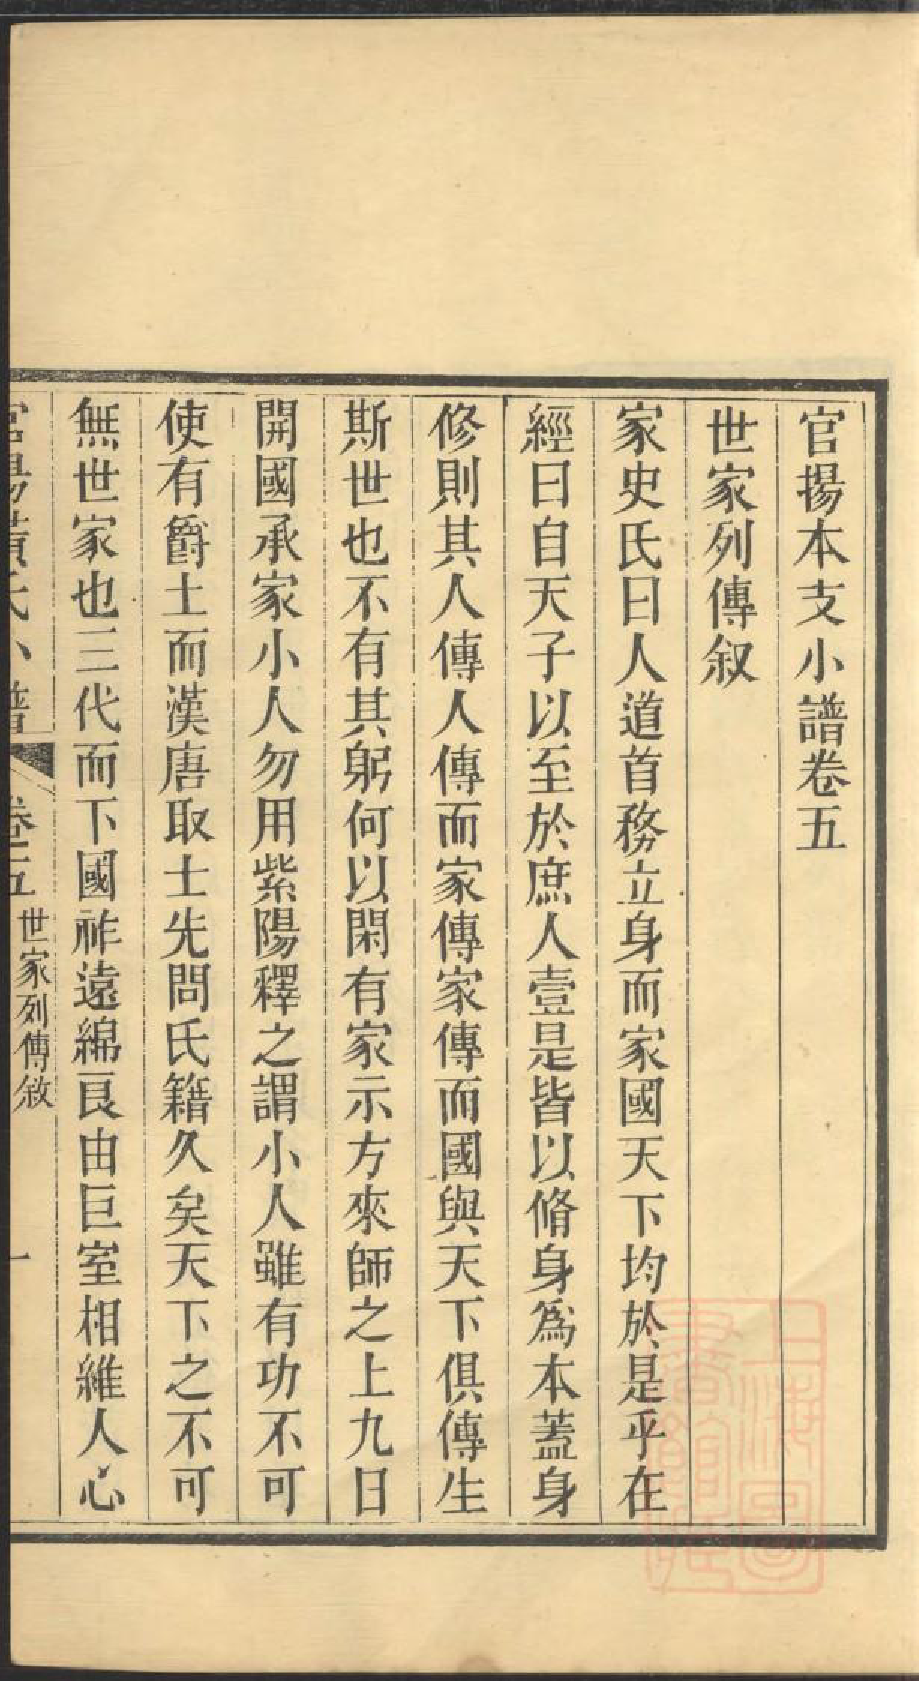 官揚本支小譜卷五
世家列傳叙
家史氏曰人道首務立身而家國天下均於是乎在
經曰自天子以至於庶人壹是皆以脩身爲本蓋身
修則其人傳人傳而家傳家傳而國與天下俱傳生
斯世也不有其躬何以閑有家示方來師之上九日
開國承家小人勿用紫陽釋之謂小人雖有功不可
使有爵土而漢唐取士先問氏籍久矣天下之不可
無世家也三代而下國祚遠綿良由巨室相維人心
氏小譜 卷五 世家列傳敘 一
上海圖書館藏